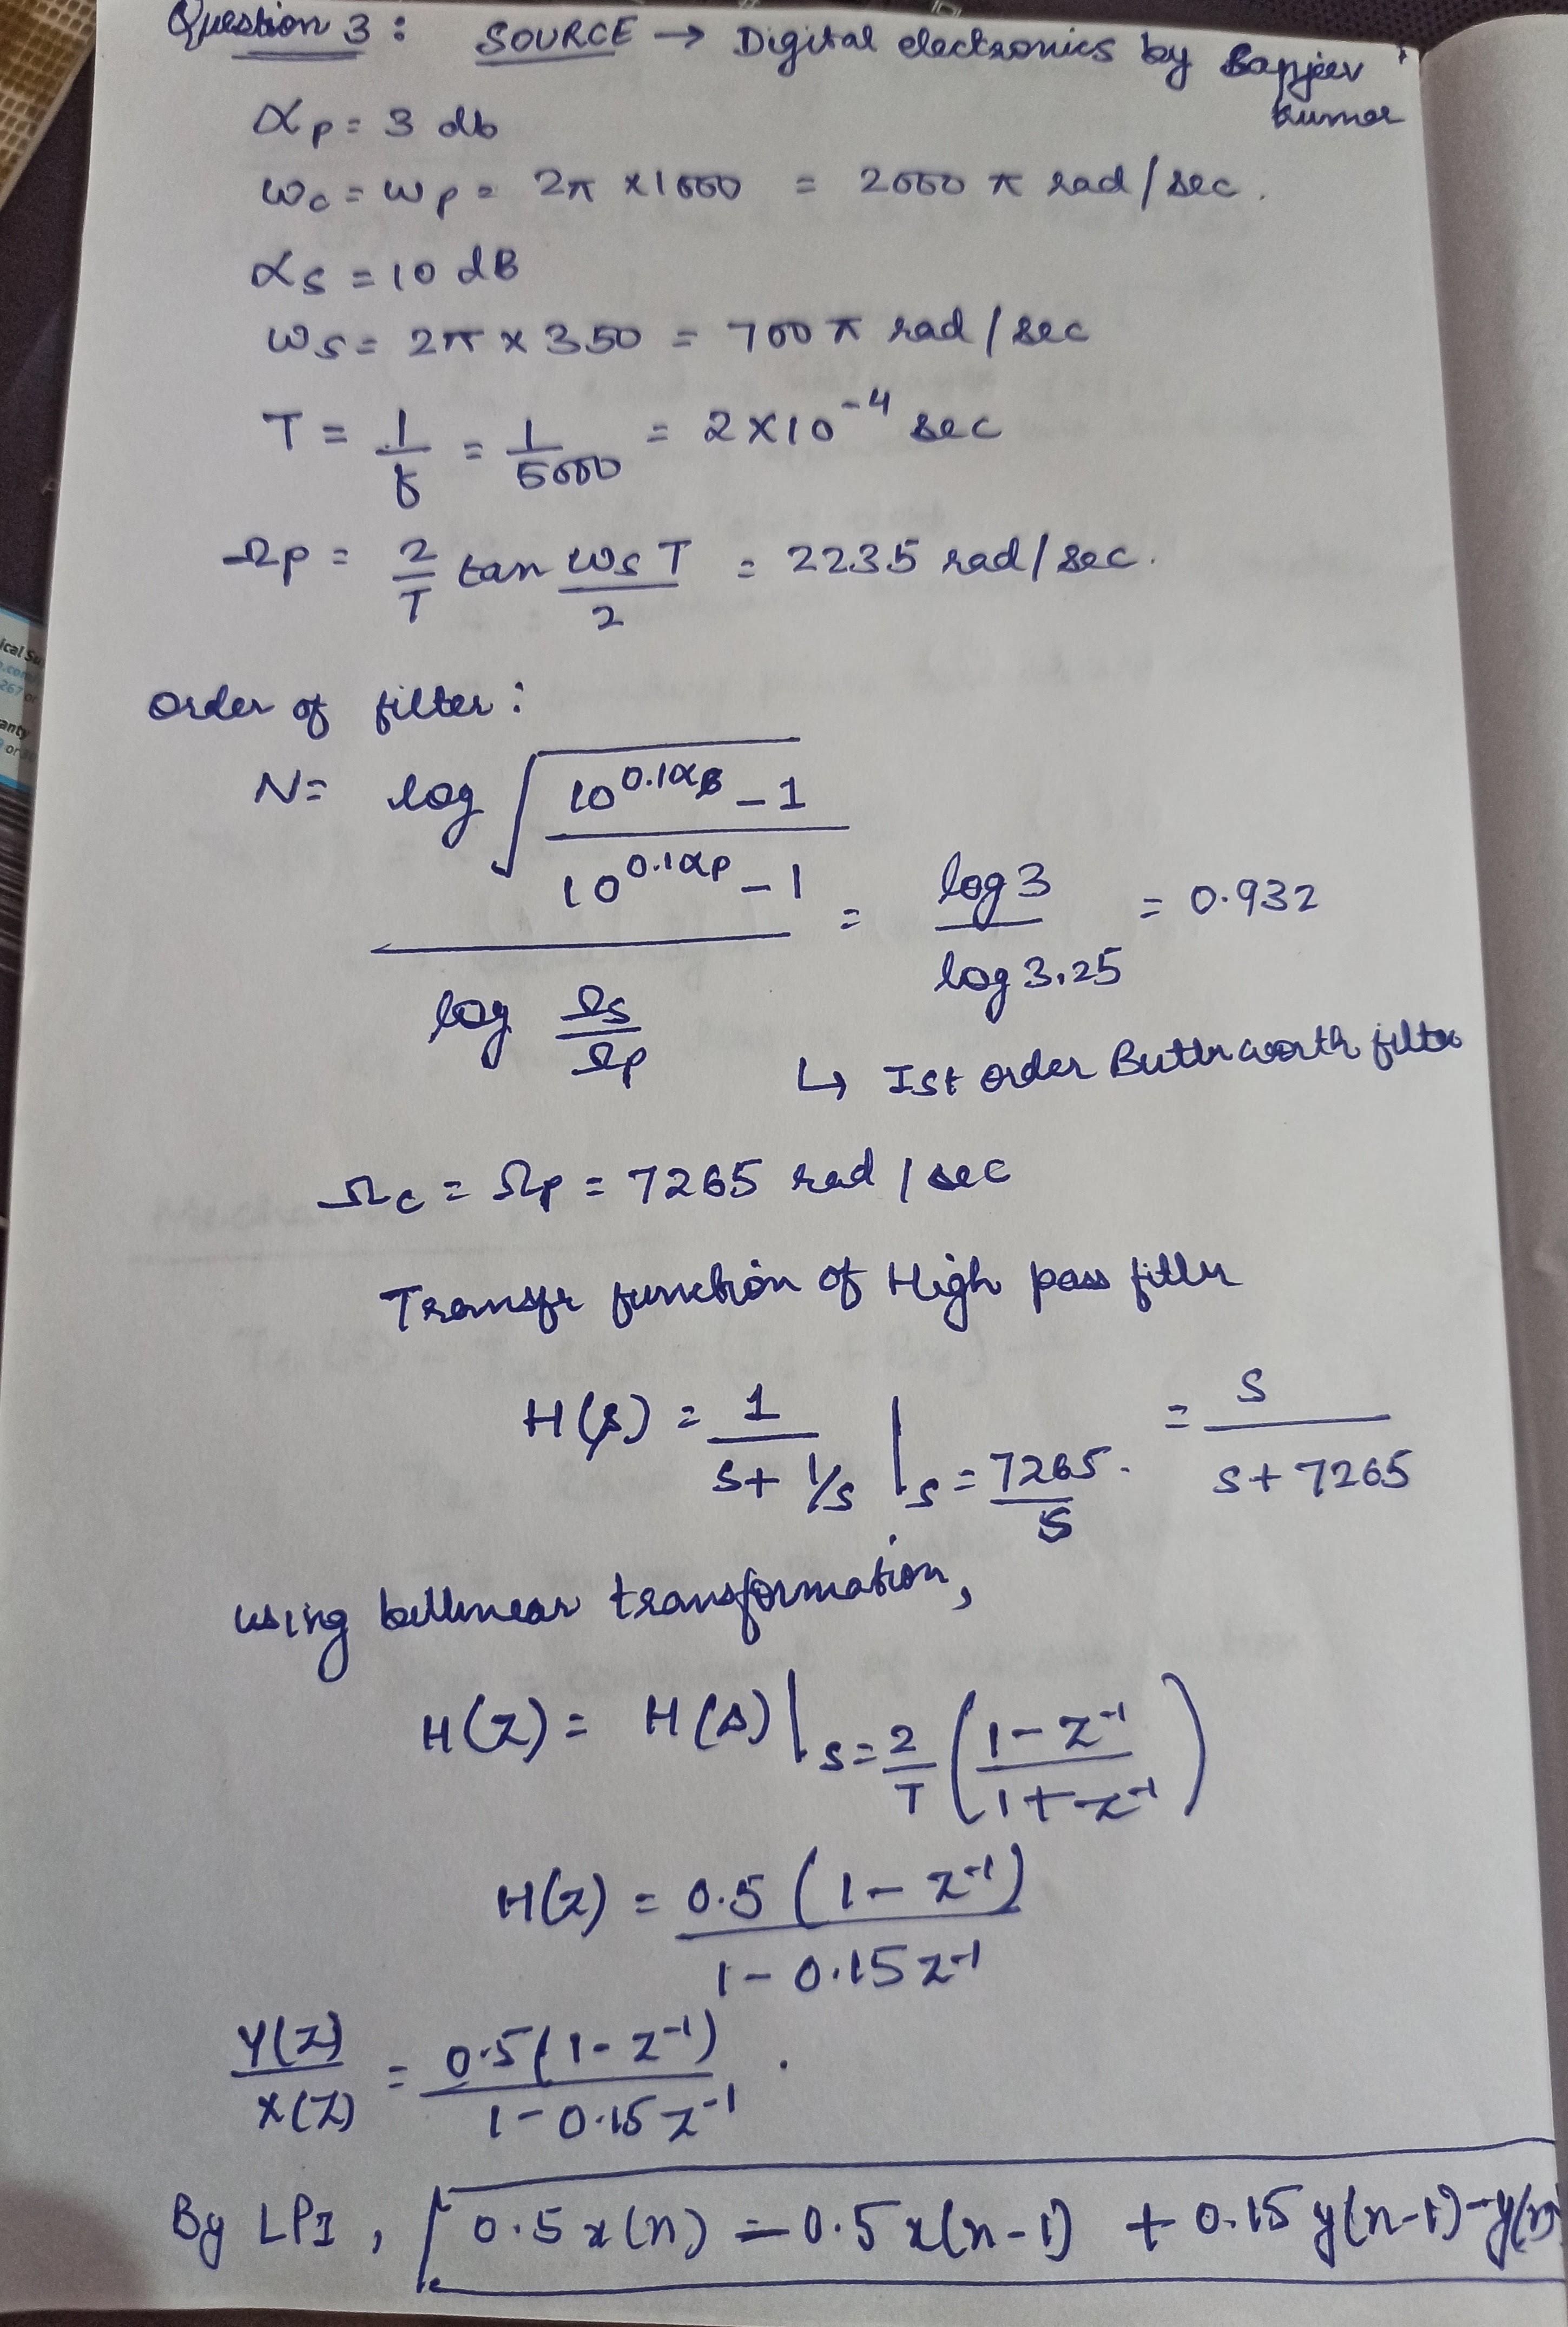 Question 3 : SOURCE → Digital electronics by Sanjeev Kumar
αp = 3 db
ωc = ωp = 2π × 1000 = 2000 π rad/sec.
αs = 10 dB
ωs = 2π × 350 = 700 π rad/sec
T = 1/f = 1/5000 = 2×10^-4 sec
Ωp = 2/T tan ωsT/2 = 2235 rad/sec.
Order of filter :
N = log √((10^0.1αs - 1)/(10^0.1αp - 1)) / log Ωs/Ωp = log 3 / log 3.25 = 0.932
↳ Ist order Butterworth filter
Ωc = Ωp = 7265 rad/sec
Transfer function of High pass filter
H(s) = 1/(s + 1/s) | s = 7265/s. = s/(s + 7265)
using billinear transformation,
H(z) = H(s) | s = 2/T ((1 - z^-1)/(1 + z^-1))
H(z) = 0.5 (1 - z^-1) / (1 - 0.15 z^-1)
Y(z)/X(z) = 0.5 (1 - z^-1) / (1 - 0.15 z^-1) .
By LPI, 0.5 x(n) = 0.5 x(n-1) + 0.15 y(n-1) - y(n)
ical Su
267 or
anty
or